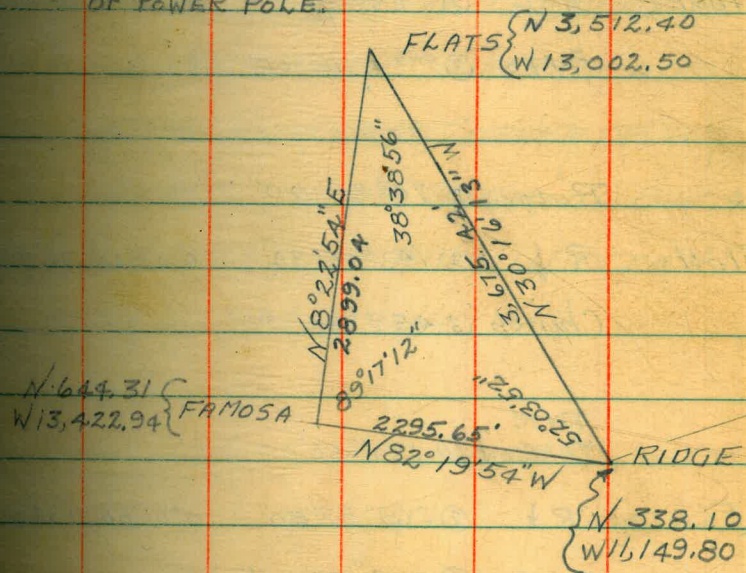 OF POWER POLE.
FLATS { N 3,512.40
W 13,002.50
38°38'56"
N 8°22'54" E
2899.04
3,675.42'
N 30°16'13" W
89°17'12"
52°03'52"
N 644.31
W 13,422.94 } FAMOSA
2295.65'
N 82°19'54" W
RIDGE
{ N 338.10
W 11,149.80